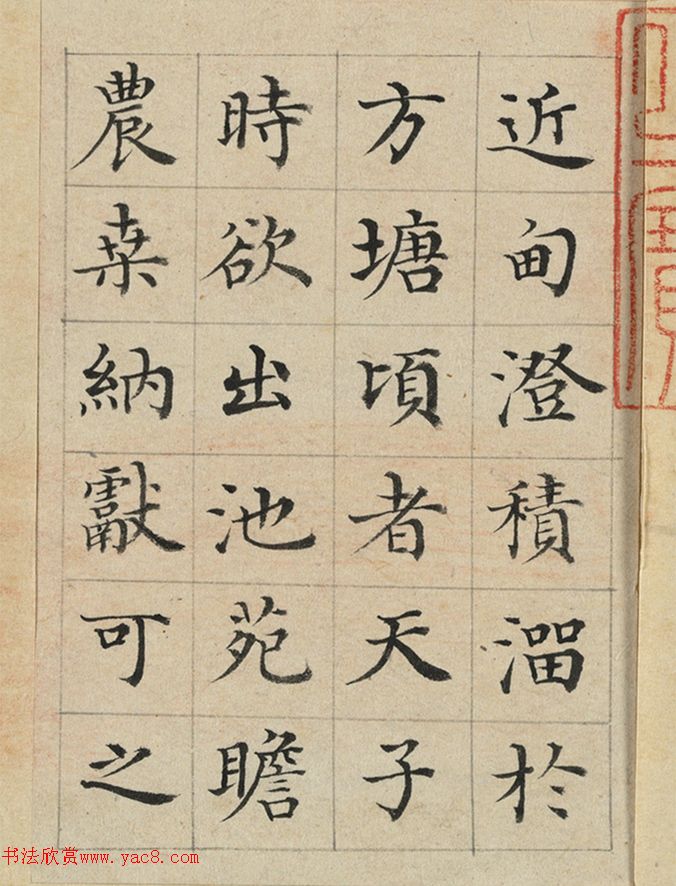 近甸澄積㴰於
方塘頃者天子
時欲出池苑瞻
農桒納獻可之
书法欣赏www.yac8.com